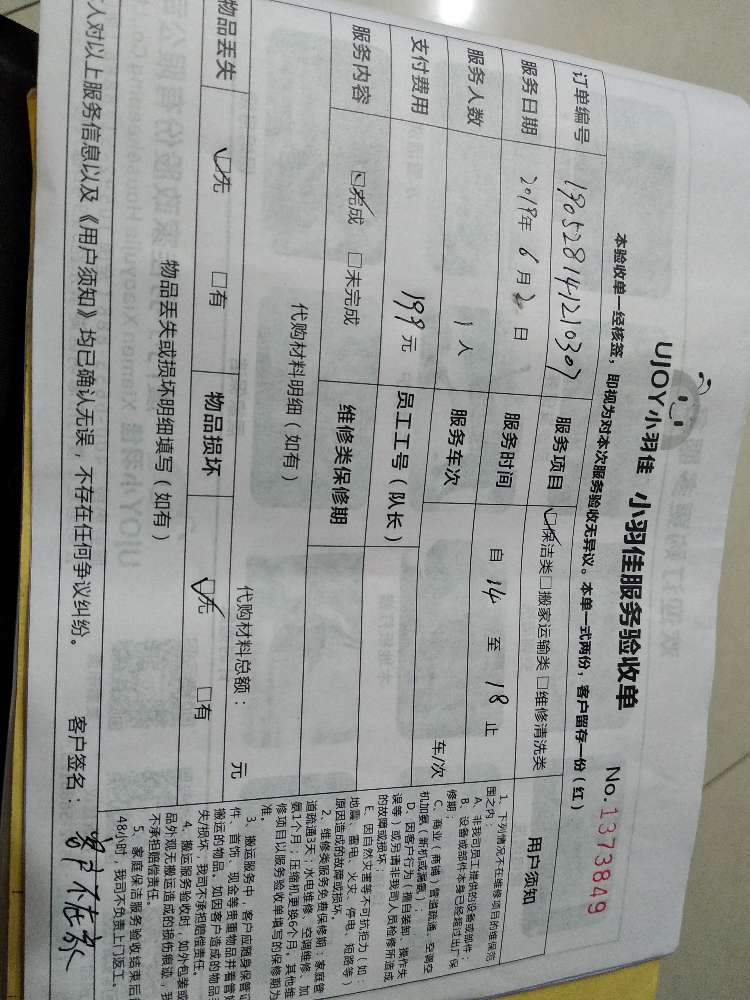 UJOY小羽佳 小羽佳服务验收单
No.1373849
本验收单一经核签，即视为对本次服务验收无异议。本单一式两份，客户留存一份（红）
订单编号 190528141210307 服务项目 ☑保洁类□搬家运输类□维修清洗类
服务日期 2019年6月2日 服务时间 自14至18止
服务人数 1人 服务车次 车/次
支付费用 199元 员工工号（队长）
服务内容 ☑完成 □未完成 维修类保修期
代购材料明细（如有） 代购材料总额： 元
物品丢失 ☑无 □有 物品损坏 ☑无 □有
物品丢失或损坏明细填写（如有）
人对以上服务信息以及《用户须知》均已确认无误，不存在任何争议纠纷。 客户签名：客户不在家
用户须知
1、下列情况不在维修项目的维保范
围之内：
A、非我司员工提供的设备或部件；
B、设备或部件本身已经超过出厂保
修期；
C、商业（商铺）管道疏通、空调移
机加氨（新机或漏氨）
D、因客户行为（擅自装卸、操作失
误等）或另请非我司人员检修所造成
的故障或损坏；
E、因自然灾害等不可抗拒力（如：
地震、雷电、火灾、停电、短路等）
原因造成的故障或损坏。
2、维修类服务免费保修期：家庭管
道疏通3天；水电维修、空调维修、加
氨1个月，压缩机更换6个月。其他维
修项目以服务验收单填写的保修期为
准。
3、搬运服务中，客户应随身保管证
件、首饰、现金等贵重物品并看管好
搬运的物品。如因客户造成的物品丢
失/损坏，我司不承担赔偿责任。
4、搬运服务验收时，如外包装或
品外观无搬运造成的损伤痕迹，我
不承担赔偿责任。
5、家庭保洁服务验收结束后
48小时，我司不负责上门返工。